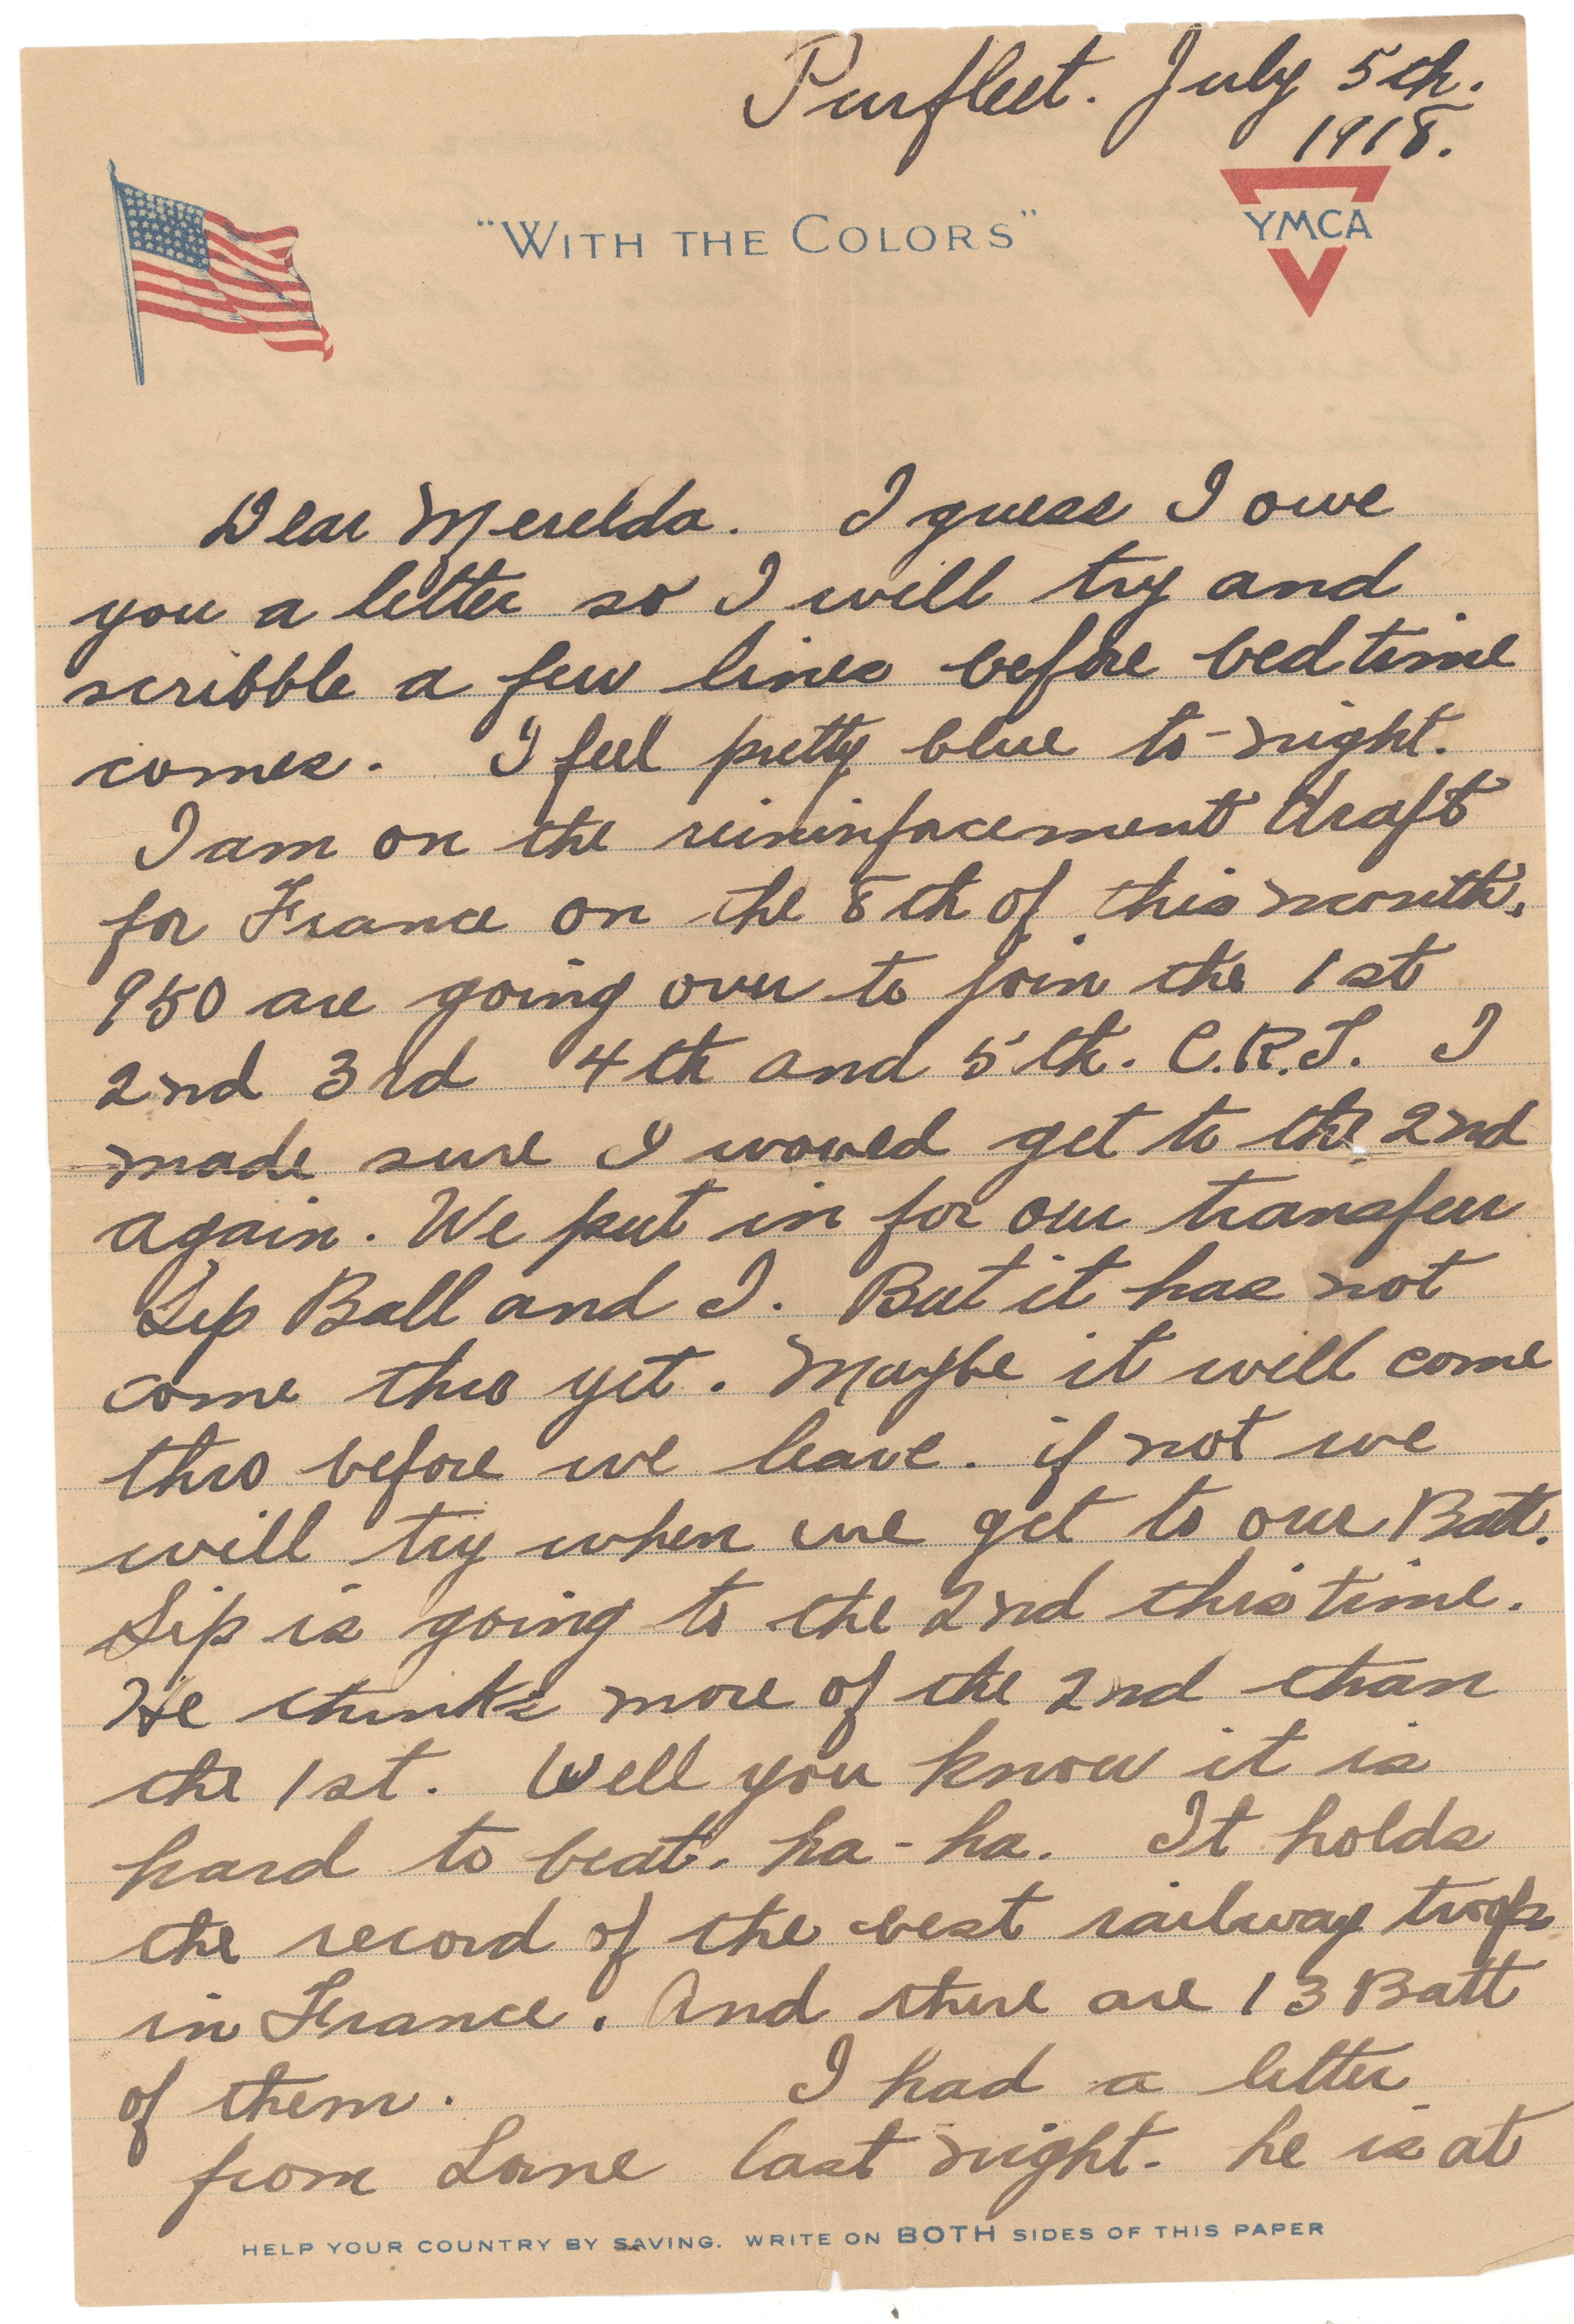 Purfleet. July 5th.
1918.
"WITH THE COLORS"
YMCA
Dear Merelda. I guess I owe
you a letter so I will try and
scribble a few lines before bedtime
comes. I feel pretty blue to-night.
I am on the reininfacement draft
for France on the 8th of this month.
950 are going over to join the 1st
2nd 3rd 4th and 5th. C.R.T. I
made sure I would get to the 2nd
again. We put in for our transfer
Sip Ball and I. But it has not
come thro yet. Maybe it will come
thro before we leave. if not we
will try when we get to our Batt.
Sip is going to the 2nd this time.
He thinks more of the 2nd than
the 1st. Well you know it is
hard to beat. ha-ha. It holds
the record of the best railway troops
in France. And there are 13 Batt
of them. I had a letter
from Lorne last night. he is at
HELP YOUR COUNTRY BY SAVING. WRITE ON BOTH SIDES OF THIS PAPER